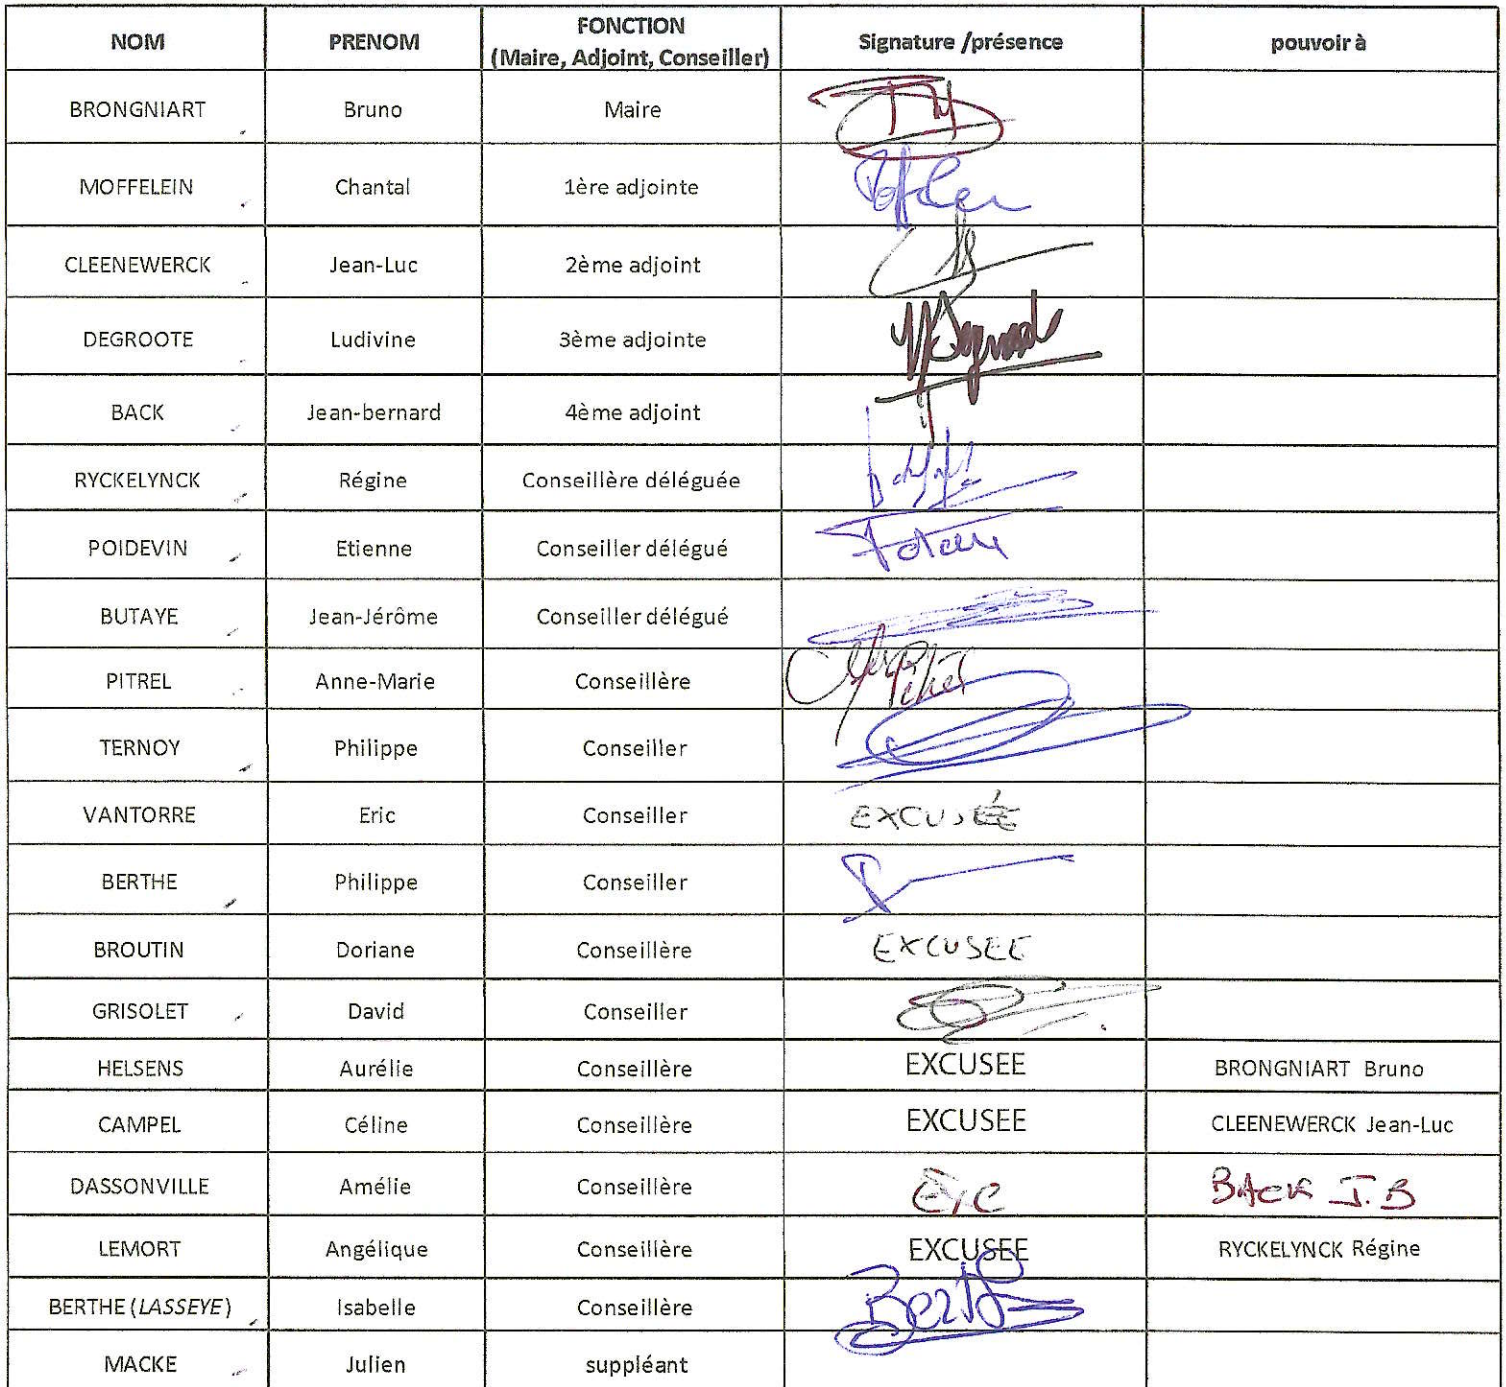 NOM PRENOM FONCTION (Maire, Adjoint, Conseiller) Signature /présence pouvoir à
BRONGNIART Bruno Maire
MOFFELEIN Chantal 1ère adjointe
CLEENEWERCK Jean-Luc 2ème adjoint
DEGROOTE Ludivine 3ème adjointe
BACK Jean-bernard 4ème adjoint
RYCKELYNCK Régine Conseillère déléguée
POIDEVIN Etienne Conseiller délégué
BUTAYE Jean-Jérôme Conseiller délégué
PITREL Anne-Marie Conseillère
TERNOY Philippe Conseiller
VANTORRE Eric Conseiller EXCUSÉE
BERTHE Philippe Conseiller
BROUTIN Doriane Conseillère EXCUSEE
GRISOLET David Conseiller
HELSENS Aurélie Conseillère EXCUSEE BRONGNIART Bruno
CAMPEL Céline Conseillère EXCUSEE CLEENEWERCK Jean-Luc
DASSONVILLE Amélie Conseillère Exc BACK J.B
LEMORT Angélique Conseillère EXCUSEE RYCKELYNCK Régine
BERTHE (LASSEYE) Isabelle Conseillère
MACKE Julien suppléant